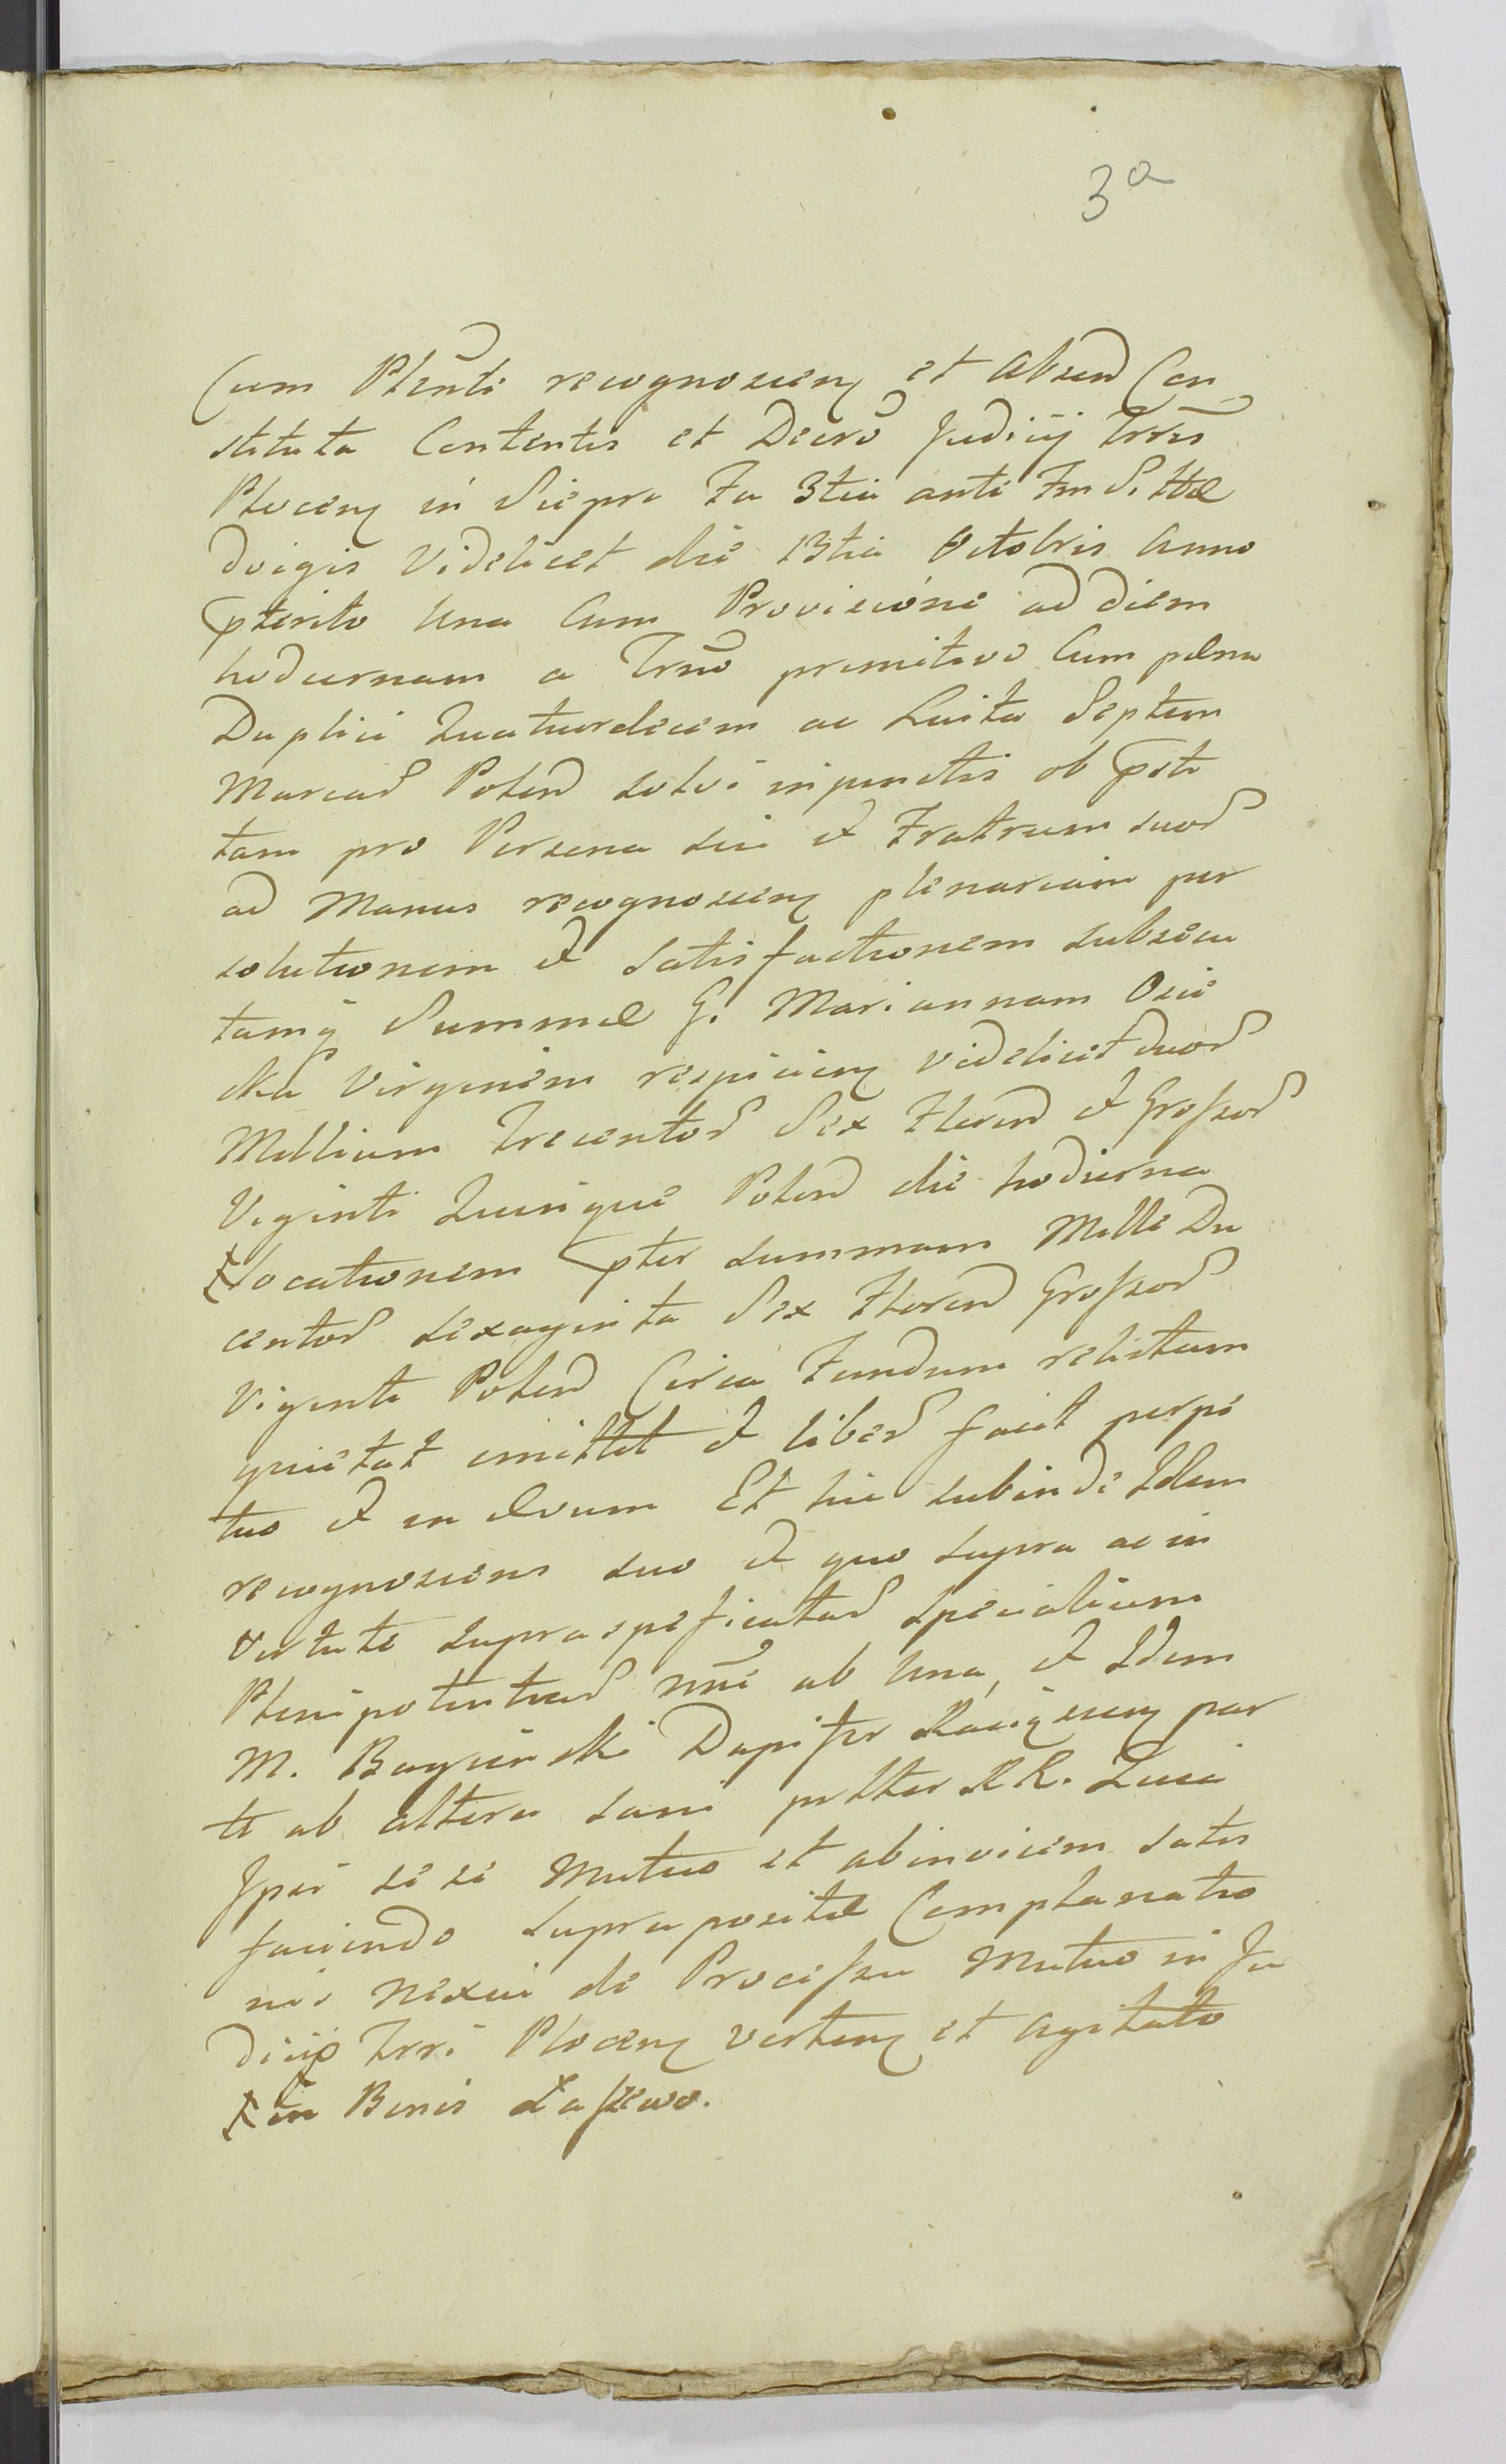 3a
Cum Plenti recognoscen et absen Con
stituta Contentis et Decro Judicij Trris
Plocen in Sierpc Fa 3tia anti Fm S. Hæ
dvigis Videlicet die 13tia Octobris Anno
pterito Una Cum Provisione ad diem
hodiernam a Trno primitivo Cum pœna
Duplici Quatuordecem ac Luita Septem
Marcar Polon solvi injunctis ob psti
tam pro Persona sui et Fratrum suor
ad Manus recognoscen plenariam per
solutionem et Satisfactionem subsecu
tamq Summæ G. Mariannam Osie
cka Virginem respicien videlicet duor
Millium Trecentor Sex Floren et Grossor
Viginti Quinque Polon die hodierna
locationem pter summam Mille Du
centor sexaginta Sex Floren Grossor
Viginti Polon Circa Fundum relictam
quietat emittet et liber facit perpe
tuo et in ævum Et hic subinde Idem
recognoscens suo et quo supra ac in
Virtute supraspeficatar specialium
Plenipotentiar nne ab Una, et Idem
M. Bagieński Dapifer Raciązen par
te ab altera sani prttes RR. Quia
Ipsi sese Mutuo et abinvicem satis
faciendo supra positæ Complanatio
nis nexui de Processu Mutuo in Ju
diciis Trri Plocen verten et agitato
in Bonis Laszewo.